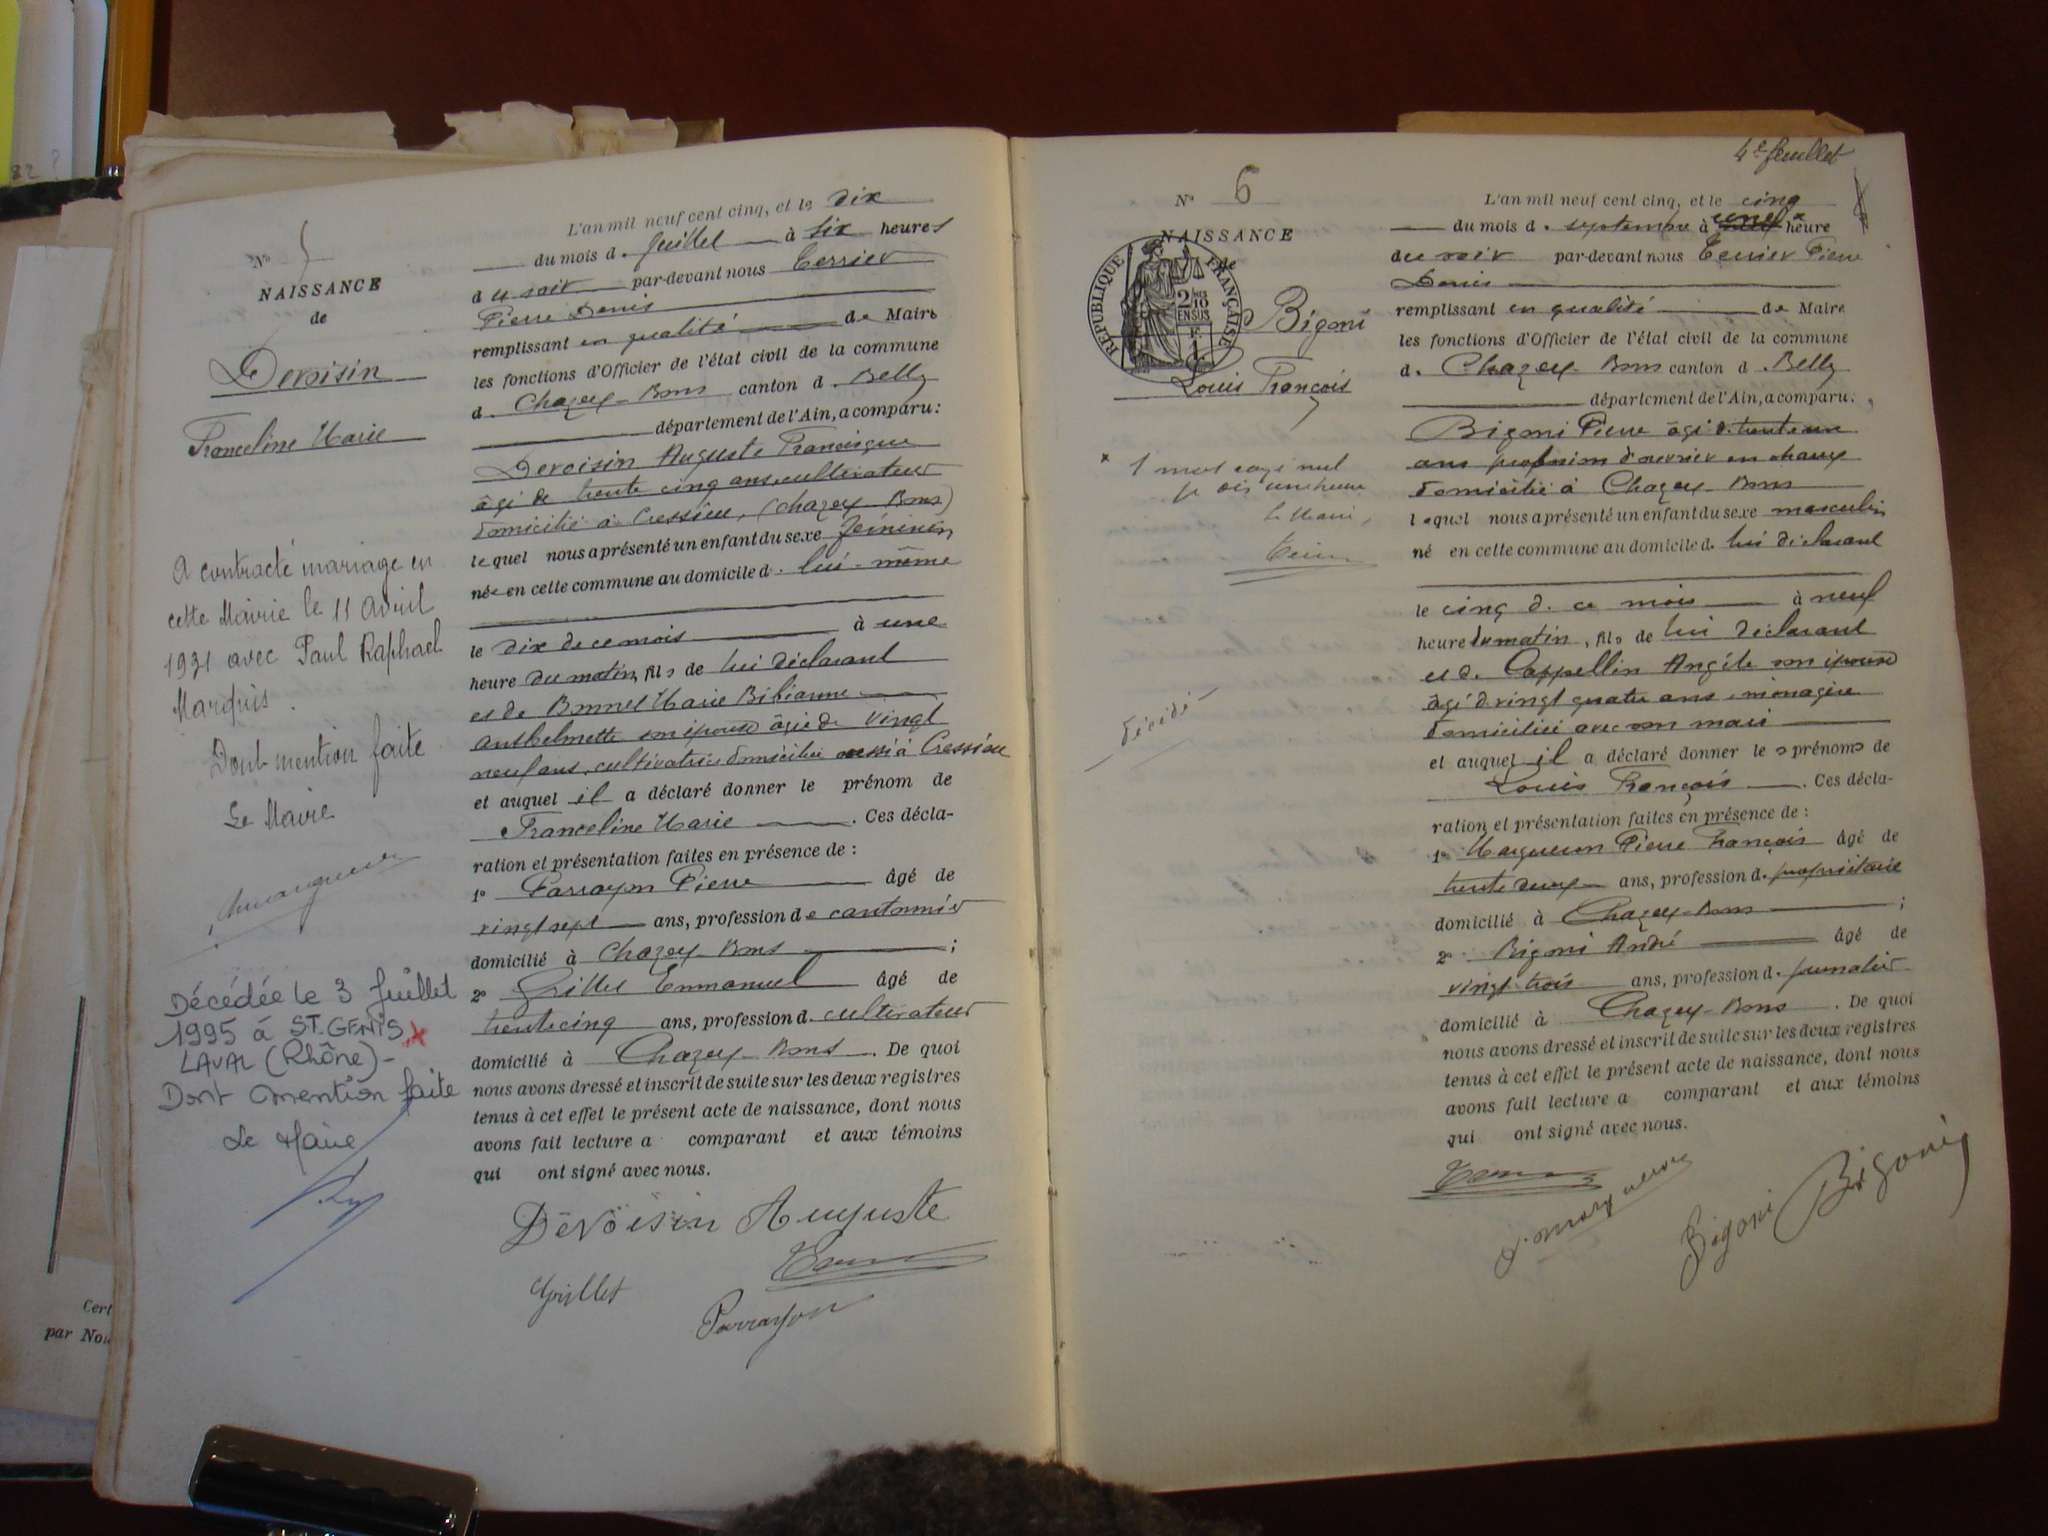 N° 5
NAISSANCE
de
Devoisin
Franceline Marie
A contracté mariage en
cette Mairie le 11 Avril
1931 avec Paul Raphael
Marquis.
Dont mention faite
Le Maire
Décédée le 3 Juillet
1995 à ST. GENIS
LAVAL (Rhône) -
Dont mention faite
Le Maire
L'an mil neuf cent cinq, et le dix
du mois d. Juillet à six heures
du soir par-devant nous Terrier
Pierre Denis
remplissant en qualité de Maire
les fonctions d'Officier de l'état civil de la commune
d. Chazey-Bons canton d. Belley
département de l'Ain, a comparu:
Devoisin Auguste Francisque
âgé de trente cinq ans, cultivateur
domicilié à Cressieu, (Chazey-Bons)
lequel nous a présenté un enfant du sexe féminin,
née en cette commune au domicile d. lui-même
le dix de ce mois à une
heure du matin, fils de lui déclarant
et de Bonnet Marie Bibianne
Anthelmette son épouse âgée de vingt
neuf ans, cultivatrice domiciliée aussi à Cressieu
et auquel il a déclaré donner le prénom de
Franceline Marie. Ces décla-
ration et présentation faites en présence de :
1° Parrayon Pierre âgé de
vingt sept ans, profession de cantonnier
domicilié à Chazey-Bons ;
2° Grillet Emmanuel âgé de
trente cinq ans, profession d. cultivateur
domicilié à Chazey-Bons. De quoi
nous avons dressé et inscrit de suite sur les deux registres
tenus à cet effet le présent acte de naissance, dont nous
avons fait lecture a comparant et aux témoins
qui ont signé avec nous.
Dévoisin Auguste
Grillet
Parrayon
4e feuillet
N° 6
NAISSANCE
de
Bigoni
Louis François
RÉPUBLIQUE FRANÇAISE
2/10 EN SUS
1 mot rayé nul
Le Maire,
décédé
L'an mil neuf cent cinq, et le cinq
du mois d. septembre à une heure
du soir par-devant nous Terrier Pierre
Denis
remplissant en qualité de Maire
les fonctions d'Officier de l'état civil de la commune
d. Chazey-Bons canton d. Belley
département de l'Ain, a comparu:
Bigoni Pierre âgé de trente un
ans profession d'ouvrier en chaux
domicilié à Chazey-Bons
lequel nous a présenté un enfant du sexe masculin
né en cette commune au domicile d. lui déclarant
le cinq d. ce mois à neuf
heure du matin, fils de lui déclarant
et d. Cappellin Angèle son épouse
âgé d. vingt quatre ans, ménagère
domiciliée avec son mari
et auquel il a déclaré donner les prénoms de
Louis François. Ces décla-
ration et présentation faites en présence de :
1° Marqueron Pierre François âgé de
trente deux ans, profession d. propriétaire
domicilié à Chazey-Bons ;
2° Bigoni André âgé de
vingt trois ans, profession d. journalier
domicilié à Chazey-Bons. De quoi
nous avons dressé et inscrit de suite sur les deux registres
tenus à cet effet le présent acte de naissance, dont nous
avons fait lecture a comparant et aux témoins
qui ont signé avec nous.
Bigoni Bigoni
Cert
par Nou